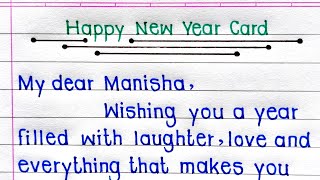 Happy New Year Card
My dear Manisha,
Wishing you a year
filled with laughter, love and
everything that makes you